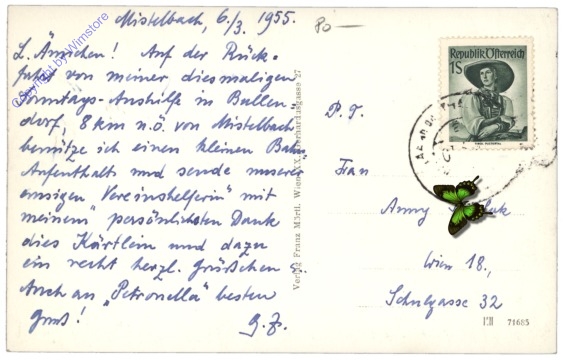 Mistelbach, 6./3. 1955.
80—
L. Ännchen! Auf der Rück-
fahrt von meiner diesmaligen
Sonntags-Aushilfe in Bullen-
dorf, 8 km n.ö. von Mistelbach,
benütze ich einen kleinen Bahn-
Aufenthalt und sende unserer
emsigen "Vereinshelferin" mit
meinem persönlichsten Dank
dies Kärtlein und dazu
ein recht herzl. Grüßchen
Auch an "Petronella" besten
Gruß! G.Z.
Copyright by Wimstore
Verlag Franz Mörtl, Wien XX. Gerhardusgasse 27
Republik Österreich
1S
P. T.
Frau
Anny
Wien 18.,
Schulgasse 32
71685